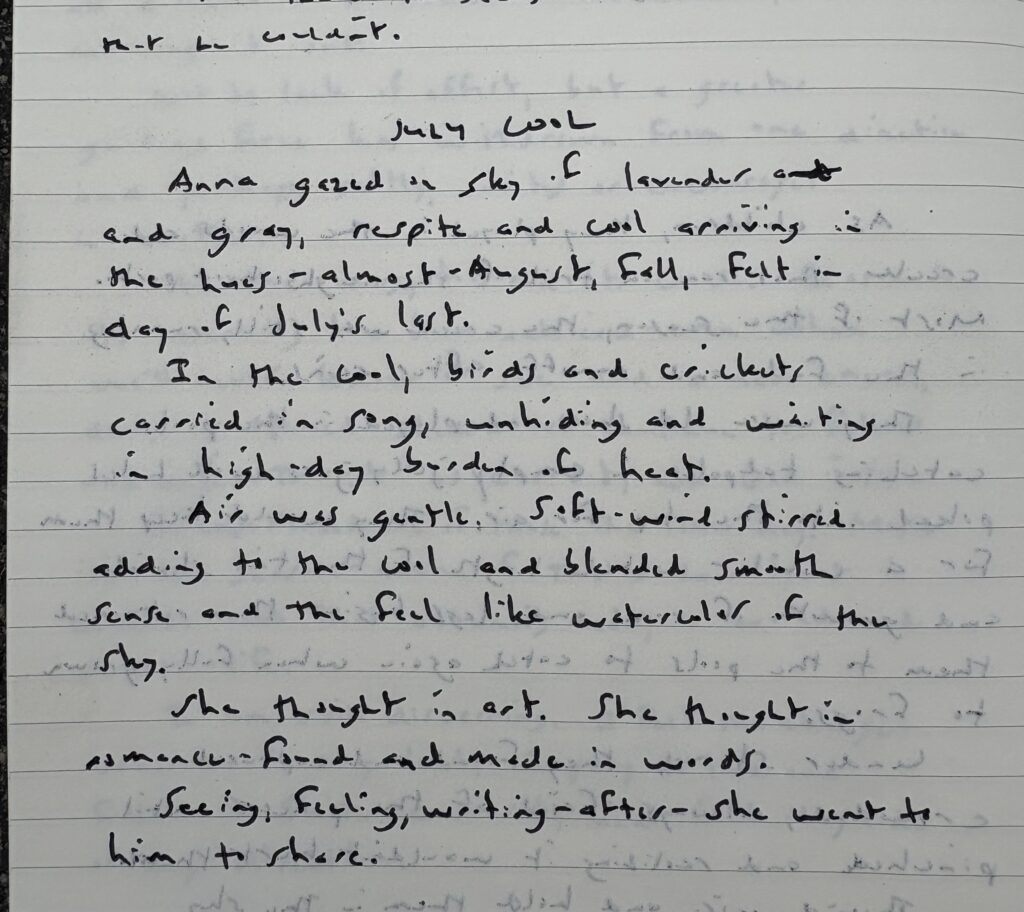 that he couldn't.
JULY COOL
Anna gazed on sky of lavender
and gray, respite and cool arriving in
the hues-almost-August, Fall, felt in
day of July's last.
In the cool, birds and crickets
carried in song, unhiding and waiting
in high-day burden of heat.
Air was gentle. Soft-wind stirred
adding to the cool and blended smooth
sense and the feel like watercolor of the
sky.
She thought in art. She thought in
romance-found and made in words.
Seeing, feeling, writing-after-she went to
him to share.